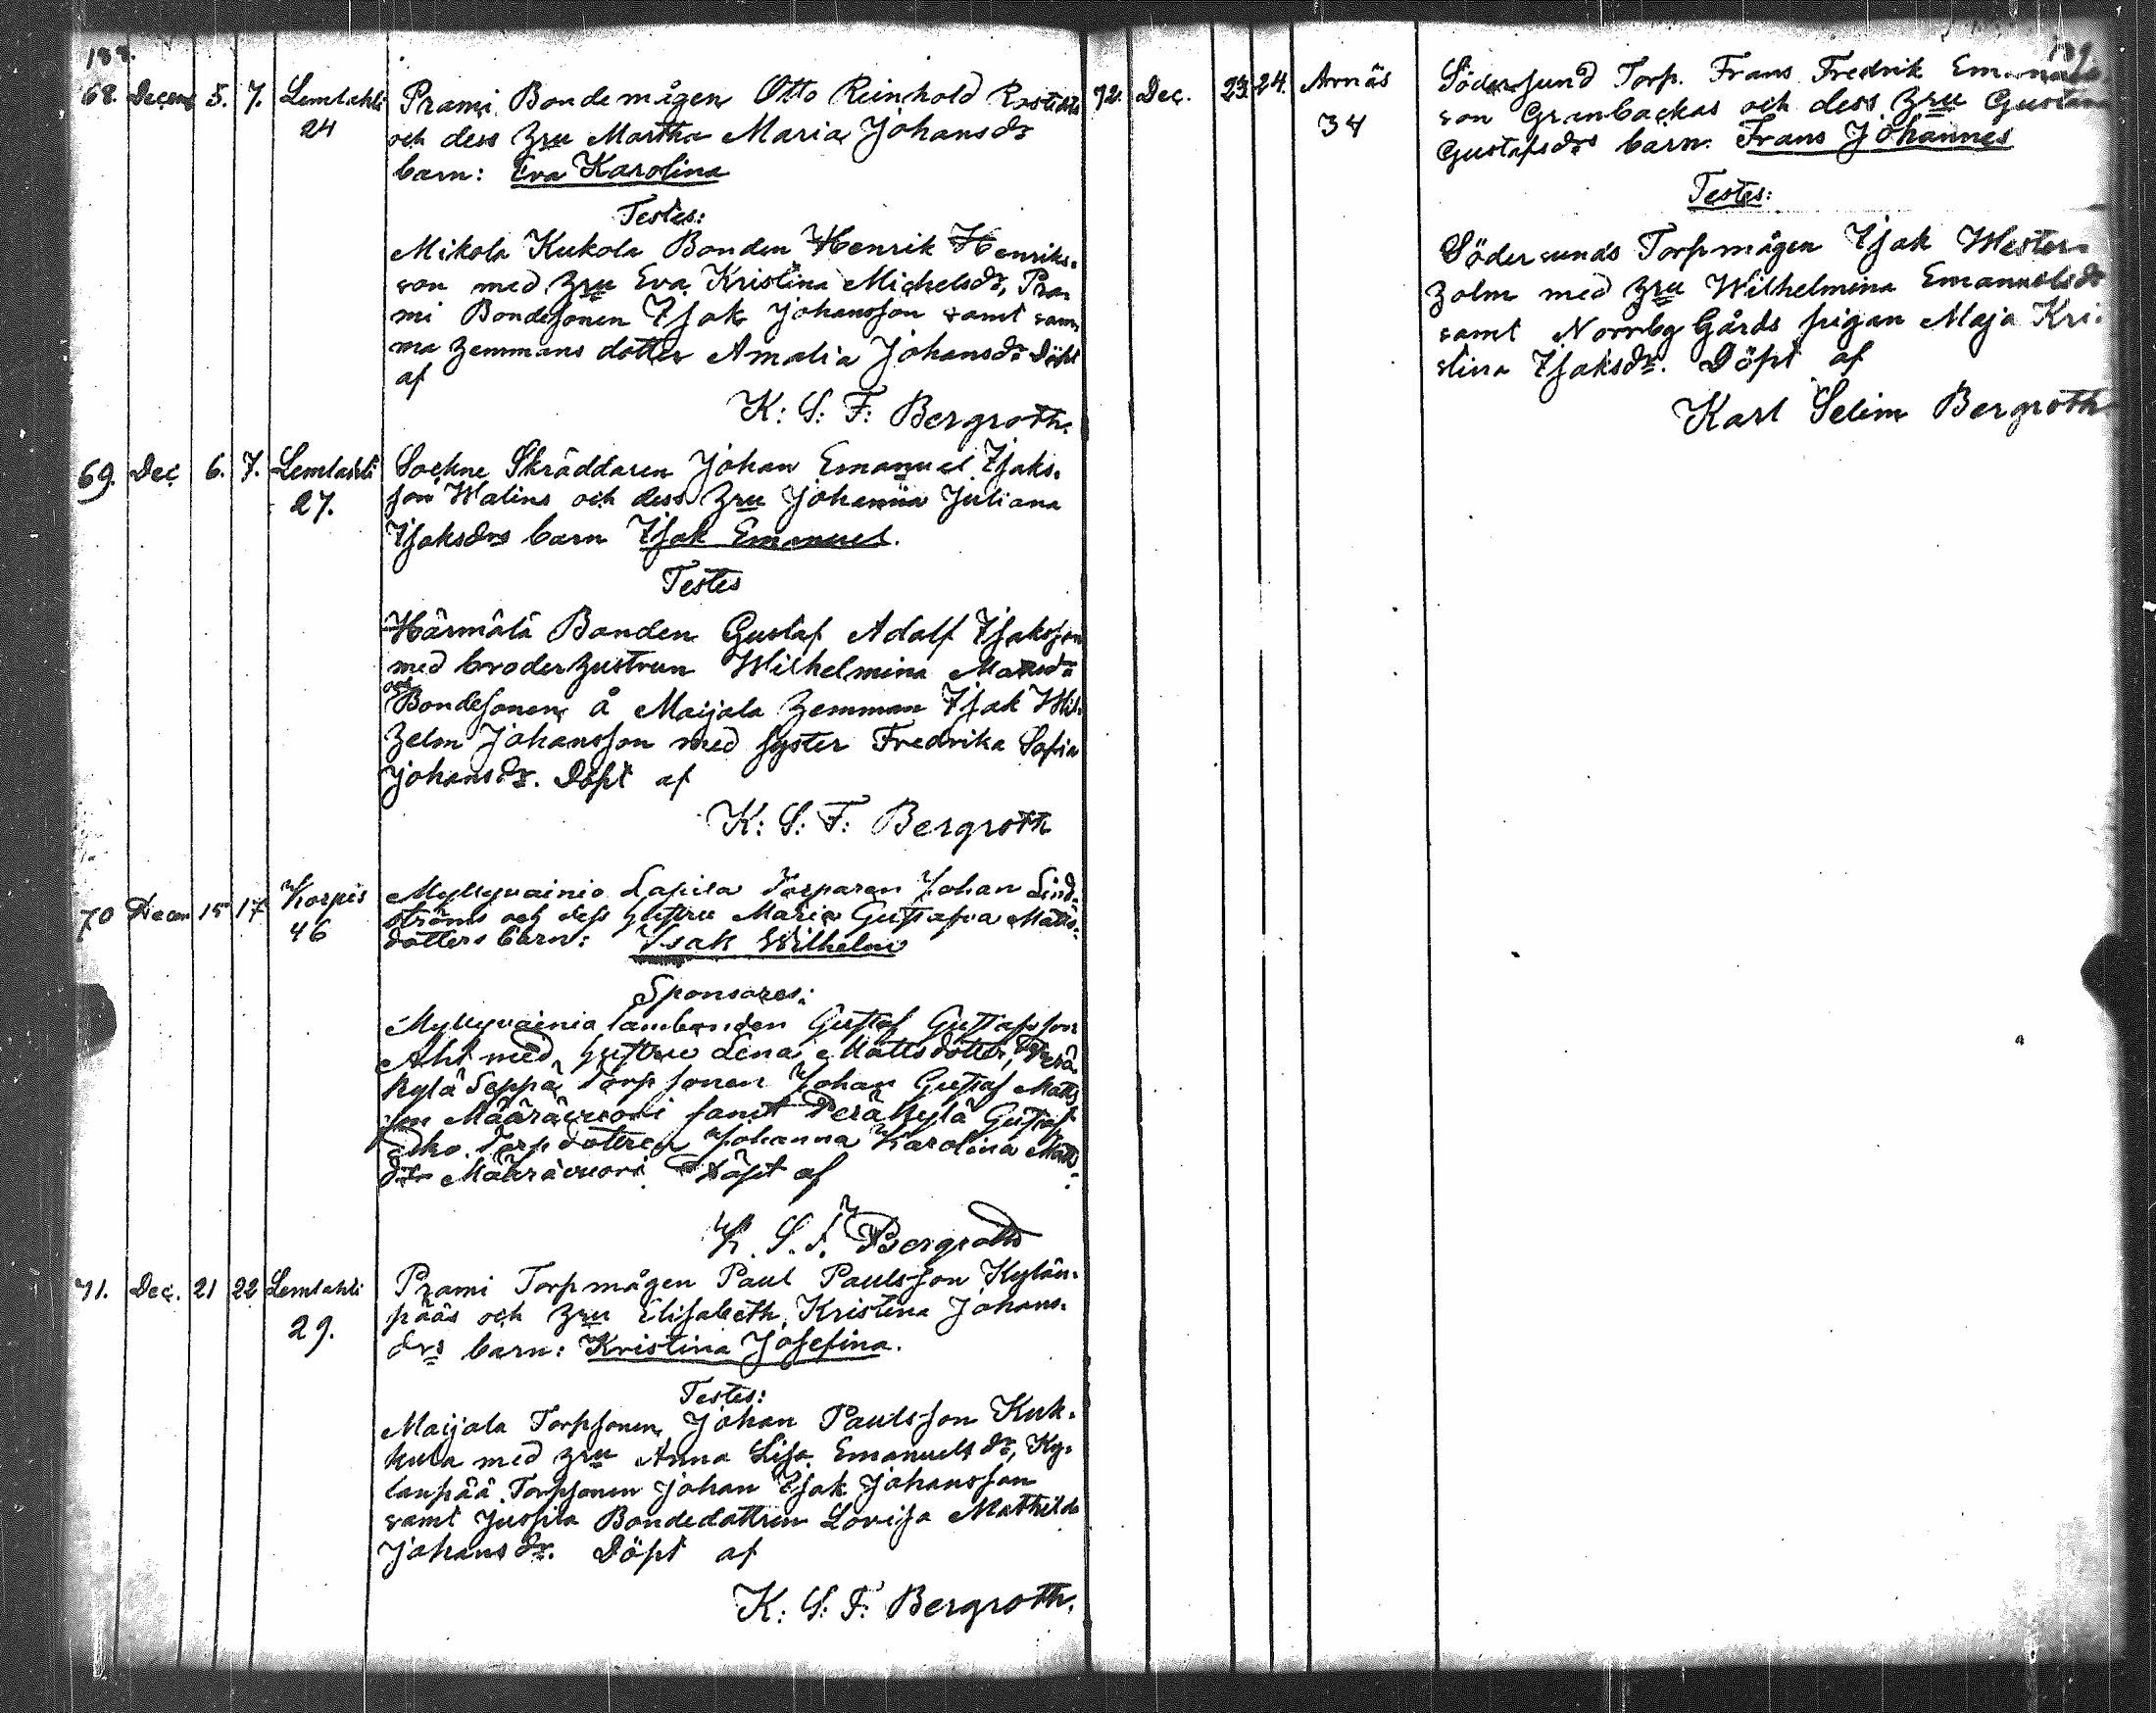 68. Decemb 5. 7. Lemlahti 24 Prami Bondemågen Otto Reinhold
och dess Hru Martha Maria Johansdr
barn: Eva Karolina
Testes:
Mikola Kukola Bonden Henrik Henriks-
son med Hru Eva Kristina Michelsdr, Pra-
mi Bondesonen Isak Johansson samt sam-
ma Hemmans dotter Amalia Johansdr Döpt
af
K: S: F: Bergroth.
69. Dec 6. 7. Lemlahti 27. Sockne Skräddaren Johan Emanuel Isaks-
son Walins och dess Hru Johanna Juliana
Isaksdrs barn Isak Emanuel.
Testes
Härmälä Bonden Gustaf Adolf Isaksson
med broderhustrun Wilhelmina
och Bondesonen å Maijala Hemman Isak Wil-
helm Johansson med syster Fredrika Sofia
Johansdr. Döpt af
K: S: F: Bergroth
70 Decem 15 17 Korpis 46 Myllyvainio Lapila Torparen Johan Lind-
ströms och dess hustru Maria Gustafva Matts-
dotters barn: Isak Wilhelm
Sponsores:
Myllyvainio Lambonden Gustaf Gustafsson
Ahl med hustru Lena Mattsdotter, Perä
kylä Seppä Torpsonen Johan Gustaf Matts
son Määrävuori samt Peräkylä Gustaf
Torpdottren Johanna Karolina Matts
dr Määrävuori Döpt af
K. S. F. Bergroth
71. Dec. 21 22 Lemlahti 29. Prami Torpmågen Paul Paulsson Kylän-
pääs och Hru Elisabeth Kristina Johans-
drs barn: Kristina Josefina.
Testes:
Maijala Torpsonen Johan Paulsson Kuk-
kula med Hru Anna Lisa Emanuelsdr, Ky-
lanpää Torpsonen Johan Isak Johansson
samt Jussila Bondedottren Lovisa Mathilda
Johansdr. Döpt af
K: S: F: Bergroth.
72. Dec. 23. 24. Arnäs 34 Södersund Torp. Frans Fredrik
son Granbackas och dess Hru Gustava
Gustafsdrs barn. Frans Johannes
Testes:
Södersunds Torpmågen Isak Wester-
holm med Hru Wilhelmina Emanuelsdr
samt Norrby Gårds pigan Maja Kri-
stina Isaksdr. Döpt af
Karl Selim Bergroth